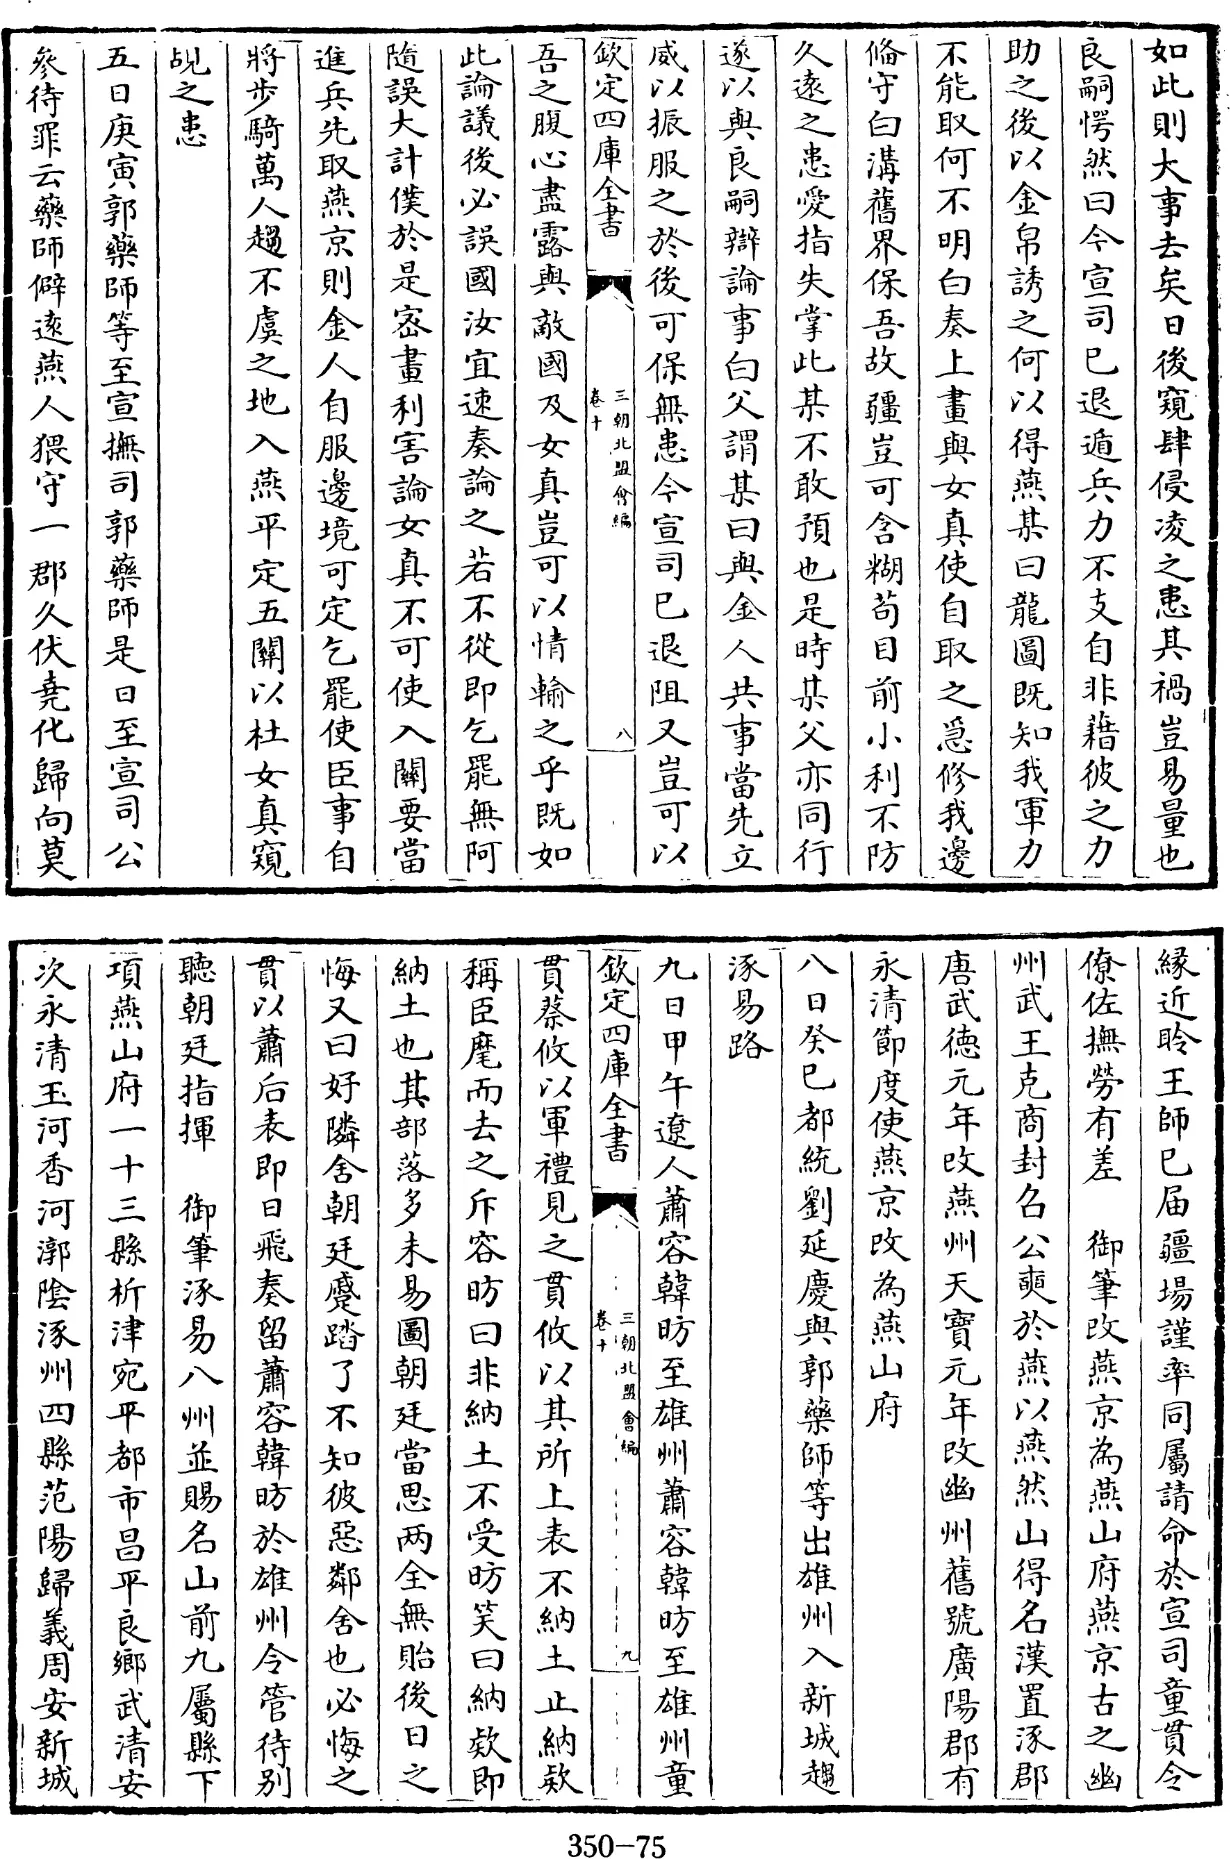 如此則大事去矣日後窺肆侵凌之患其禍豈易量也
良嗣愕然曰今宣司已退遁兵力不支自非藉彼之力
助之後以金帛誘之何以得燕某曰龍圖既知我軍力
不能取何不明白奏上畫與女真使自取之急修我邊
備守白溝舊界保吾故疆豈可含糊苟目前小利不防
久遠之患愛指失掌此某不敢預也是時某父亦同行
遂以與良嗣辯論事白父謂某曰與金人共事當先立
威以振服之於後可保無患今宣司已退阻又豈可以
欽定四庫全書
三朝北盟會編
卷十
八
吾之腹心盡露與敵國及女真豈可以情輸之乎既如
此論議後必誤國汝宜速奏論之若不從即乞罷無阿
隨誤大計僕於是密畫利害論女真不可使入關要當
進兵先取燕京則金人自服邊境可定乞罷使臣事自
將步騎萬人趨不虞之地入燕平定五關以杜女真窺
覘之患
五日庚寅郭藥師等至宣撫司郭藥師是日至宣司公
參待罪云藥師僻遠燕人猥守一郡久伏堯化歸向莫
緣近聆王師已届疆場謹率同屬請命於宣司童貫令
僚佐撫勞有差 御筆改燕京為燕山府燕京古之幽
州武王克商封召公奭於燕以燕然山得名漢置涿郡
唐武德元年改燕州天寶元年改幽州舊號廣陽郡有
永清節度使燕京改為燕山府
八日癸巳都統劉延慶與郭藥師等出雄州入新城趨
涿易路
九日甲午遼人蕭容韓昉至雄州蕭容韓昉至雄州童
欽定四庫全書
三朝北盟會編
卷十
九
貫蔡攸以軍禮見之貫攸以其所上表不納土止納欵
稱臣麾而去之斥容昉曰非納土不受昉笑曰納欵即
納土也其部落多未易圖朝廷當思兩全無貽後日之
悔又曰好隣舍朝廷蹙踏了不知彼惡鄰舍也必悔之
貫以蕭后表即日飛奏留蕭容韓昉於雄州令管待别
聽朝廷指揮 御筆涿易八州並賜名山前九屬縣下
項燕山府一十三縣析津宛平都市昌平良鄉武清安
次永清玉河香河漷陰涿州四縣范陽歸義固安新城
350-75